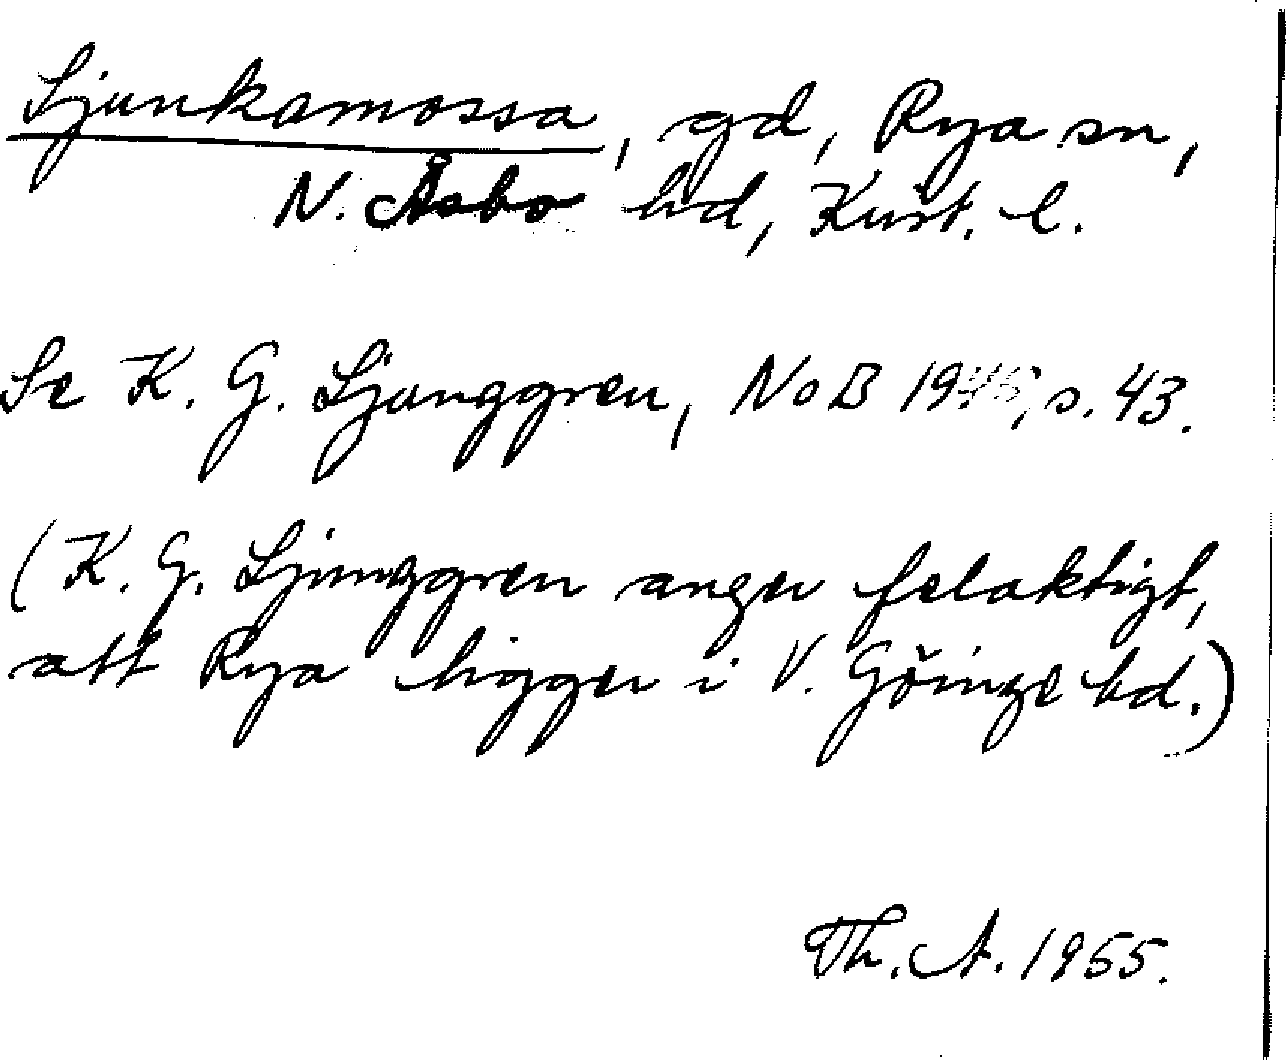 Ljunkamossa, gd, Rya sn,
N. Åsbo hd, Krist. l.
Se K. G. Ljunggren, NoB 1945, s. 43.
(K. G. Ljunggren anger felaktigt,
att Rya ligger i V. Göinge hd.)
Th. A. 1955.